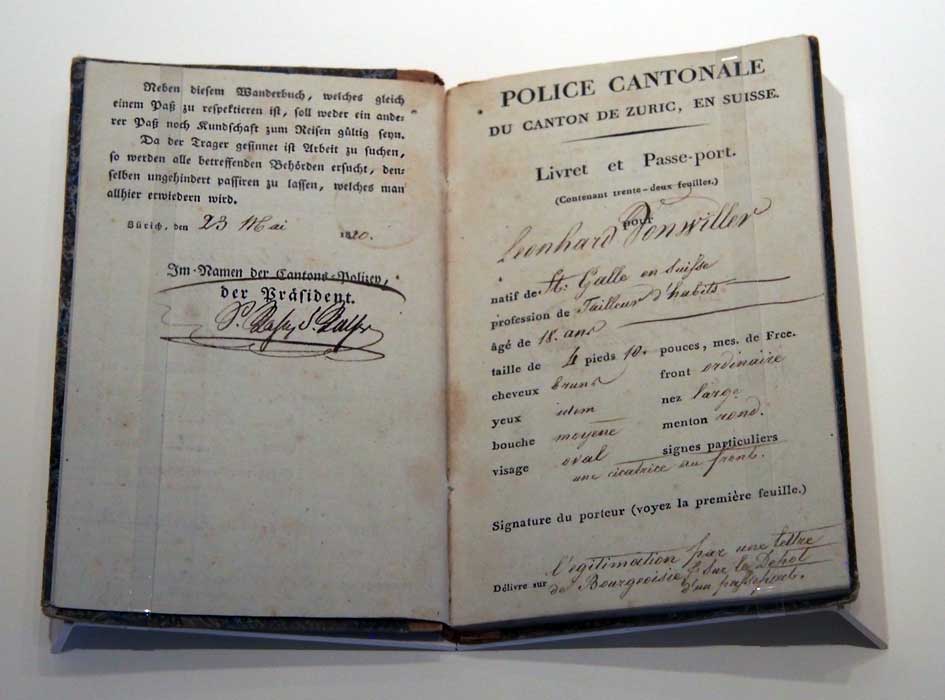 Neben diesem Wanderbuch, welches gleich
einem Paß zu respektieren ist, soll weder ein ande:
rer Paß noch Kundschaft zum Reisen gültig seyn.
Da der Trager gesinnet ist Arbeit zu suchen,
so werden alle betreffenden Behörden ersucht, den:
selben ungehindert passiren zu lassen, welches man
allhier erwiedern wird.
Zürich, den 23 Mai 1820.
Im Namen der Cantons-Polizey,
der Präsident.
POLICE CANTONALE
DU CANTON DE ZURIC, EN SUISSE.
Livret et Passe-port.
(Contenant trente-deux feuilles.)
pour
Leonhard Vonwiller
natif de St: Galle en Suisse
profession de Tailleur d'habits
âgé de 18. ans
taille de 4 pieds 10. pouces, mes. de Frce.
cheveux bruns front ordinaire
yeux idem nez large
bouche moyene menton rond.
visage oval signes particuliers
une cicatrice au front.
Signature du porteur (voyez la première feuille.)
Délivre sur l'egitimation par une lettre
de Bourgeoisie & sur le Dépot
d'un passeport.